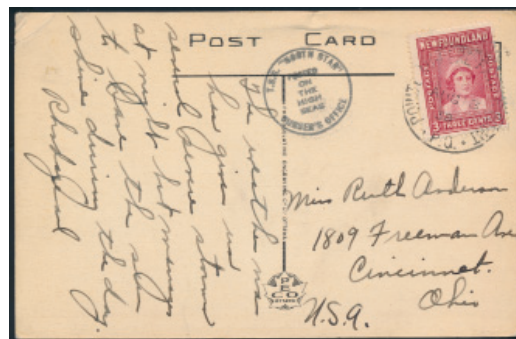 POST CARD
T.S.S. "NORTH STAR"
POSTED
ON
THE
HIGH
SEAS
PURSER'S OFFICE
NEWFOUNDLAND
POSTAGE
POSTAGE
3 THREE CENTS 3
The weather
has given us
several severe storms
at night but manages
to have the sun
shine during the day.
Miss Ruth Anderson
1809 Freeman Ave
Cincinnati.
Ohio
U.S.A.
PECO